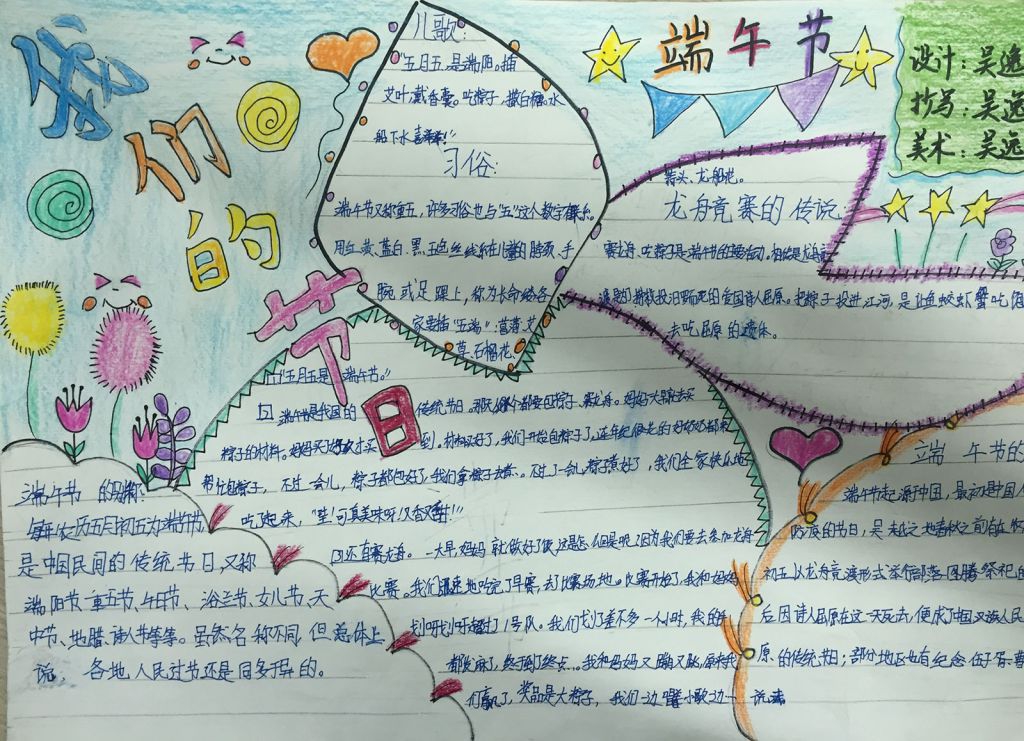 我们的节日
端午节
设计：吴逸
抄写：吴逸
美术：吴逸
儿歌：
"五月五，是端阳。插
艾叶，戴香囊。吃粽子，撒白糖。水
船下水喜洋洋！"
习俗：
端午节又称重五，许多习俗也与"五"这个数字有联系。
用红、黄、蓝、白、黑、五色丝线系在儿童的脖颈、手
腕或足踝上，称为长命缕。各
家要插"五端"：菖蒲、艾
草、石榴花、
蒜头、龙船花。
龙舟竞赛的传说
赛龙舟、吃粽子是端午节的
的爱国诗人屈原。把粽子投进江河，是让鱼蛟虾蟹吃饱
去吃屈原的遗体。
"五月五是端午节。"
端午节是我国的传统节日。那天
粽子的材料。
到。材料买好了，我们开始包粽子了。连年纪很老的奶奶都来
帮忙包粽子，不过一会儿，粽子都包好了，我们拿粽子去煮。不过了一会儿，粽子煮好了，我们全家快乐地
吃起来，"哇！可真美味呀！又香又甜！"
还有赛龙舟。一大早，妈妈就做好了饭，这是怎么回事呢？因为我们要去参加龙舟
比赛。我们迅速地吃完了早餐，去了比赛场地。比赛开始了，我和妈妈
划呀划呀，超过了1号队。我们划了差不多一小时，我的手
都发麻了，终于到了终点。我和妈妈又蹦又跳，原来我
们赢了，奖品是大粽子，我们一边唱着小歌一边
端午节的别称
每年农历五月初五为端午节
是中国民间的传统节日，又称
端阳节、重五节、午日节、浴兰节、女儿节、天
中节、地腊、诗人节等等。虽然名称不同，但总体上
说，各地人民过节还是同多于异的。
端午节的
端午节起源于中国，最初是中国人
防疫的节日，吴越之地春秋之前有在农
初五以龙舟竞渡形式举行部落图腾祭祀的
后因诗人屈原在这一天死去，便成了中国汉族人民
原的传统节日；部分地区也有纪念伍子胥、曹